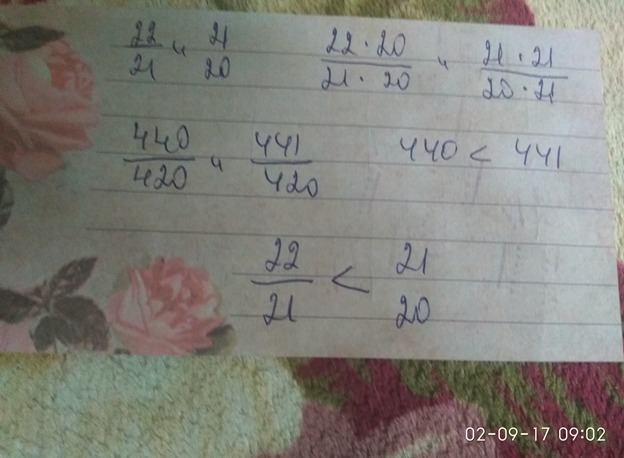 22/21 и 21/20 22·20/21·20 и 21·21/20·21
440/420 и 441/420 440 < 441
22/21 < 21/20
02-09-17 09:02